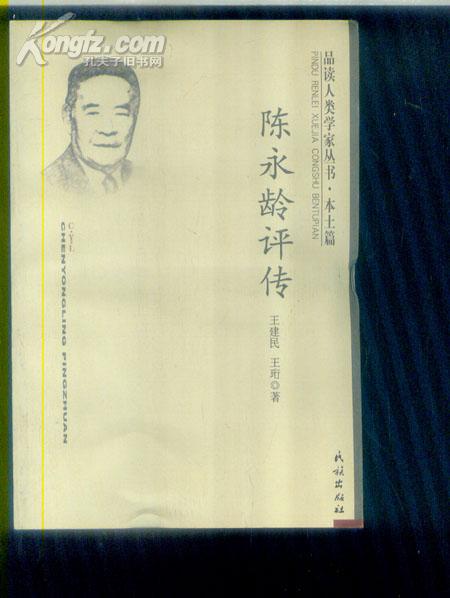 Kongfz.com
孔夫子旧书网
品读人类学家丛书·本土篇
PINDU RENLEI XUEJIA CONGSHU BENTUPIAN
陈永龄评传
王建民 王珩◎著
C·YL
CHENYONGLING PINGZHUAN
民族出版社